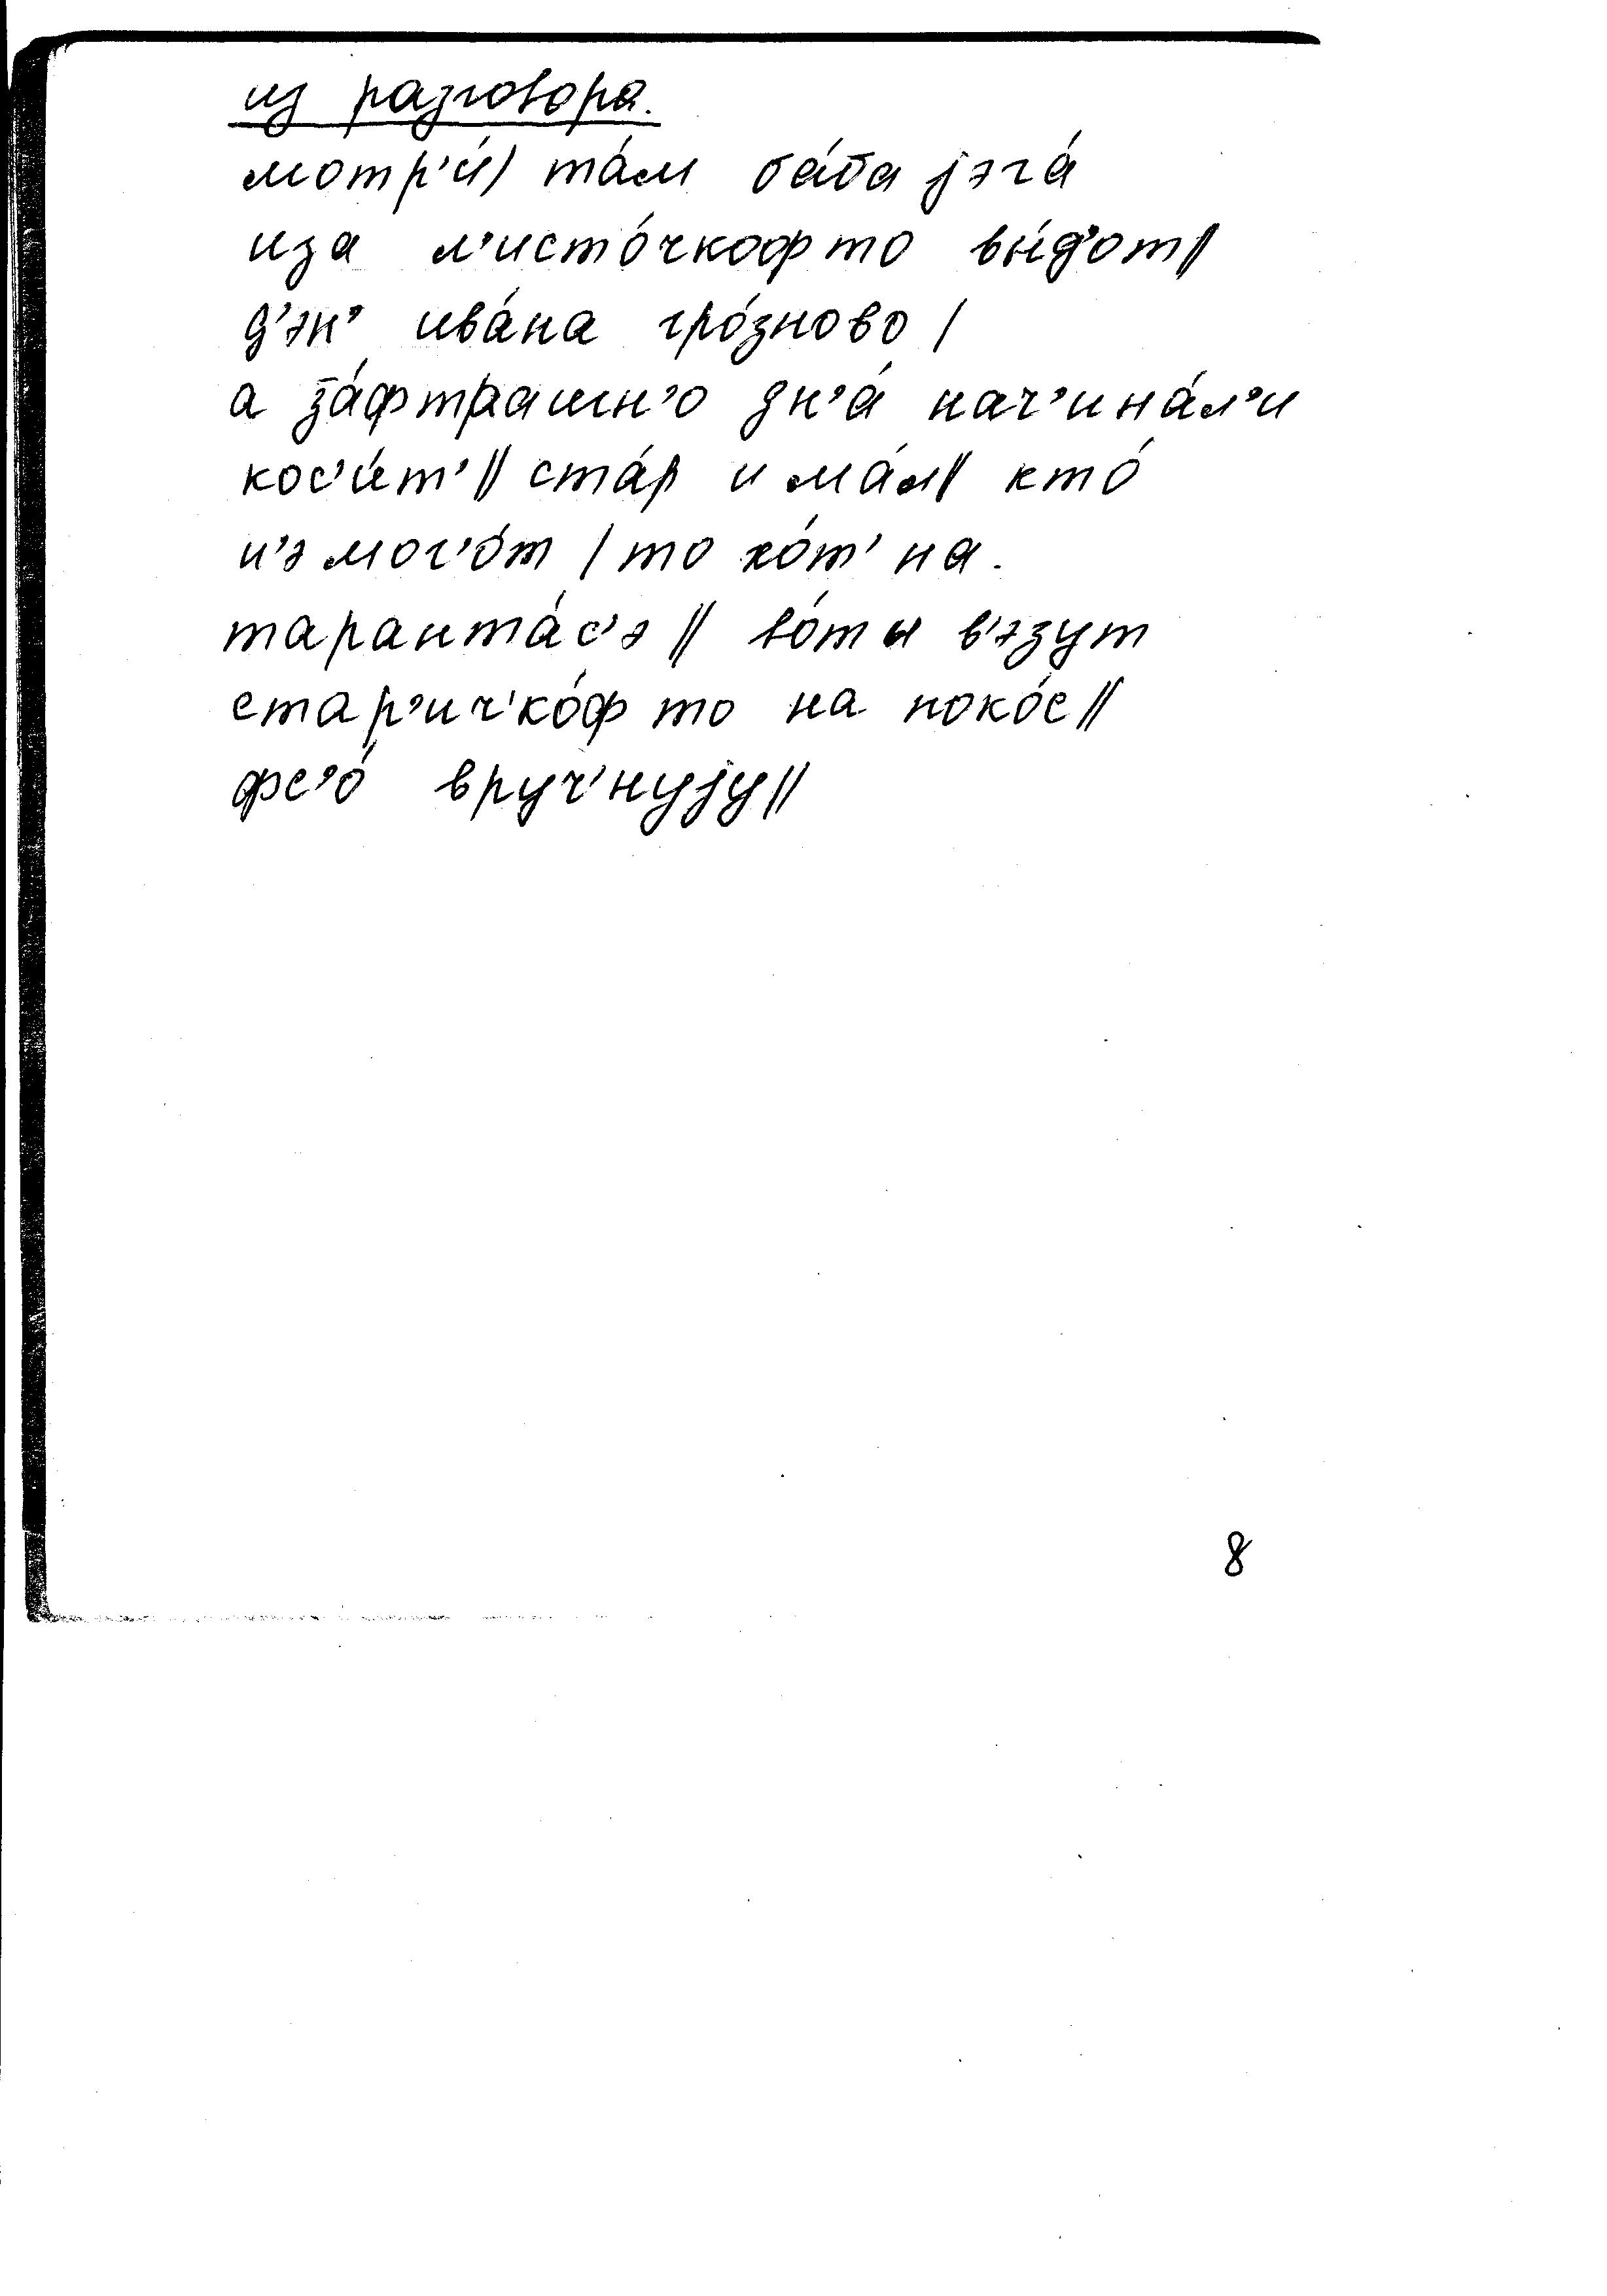 из разговора.
мотр'и́) та́м ба́ба јэга́
иза л'исто́чкоф то вы́д'от//
д'эн' ива́на гро́зново /
а за́фтрашн'о дн'а́ нач'ина́л'и
кос'и́т'// ста́р и ма́л// кто́
н'э мог'о́т / то хо́т' на.
таранта́с'э // во́т ы в'эзут
стар'ич'ко́ф то на поко́с//
фс'о́ вруч'нуjу//
8